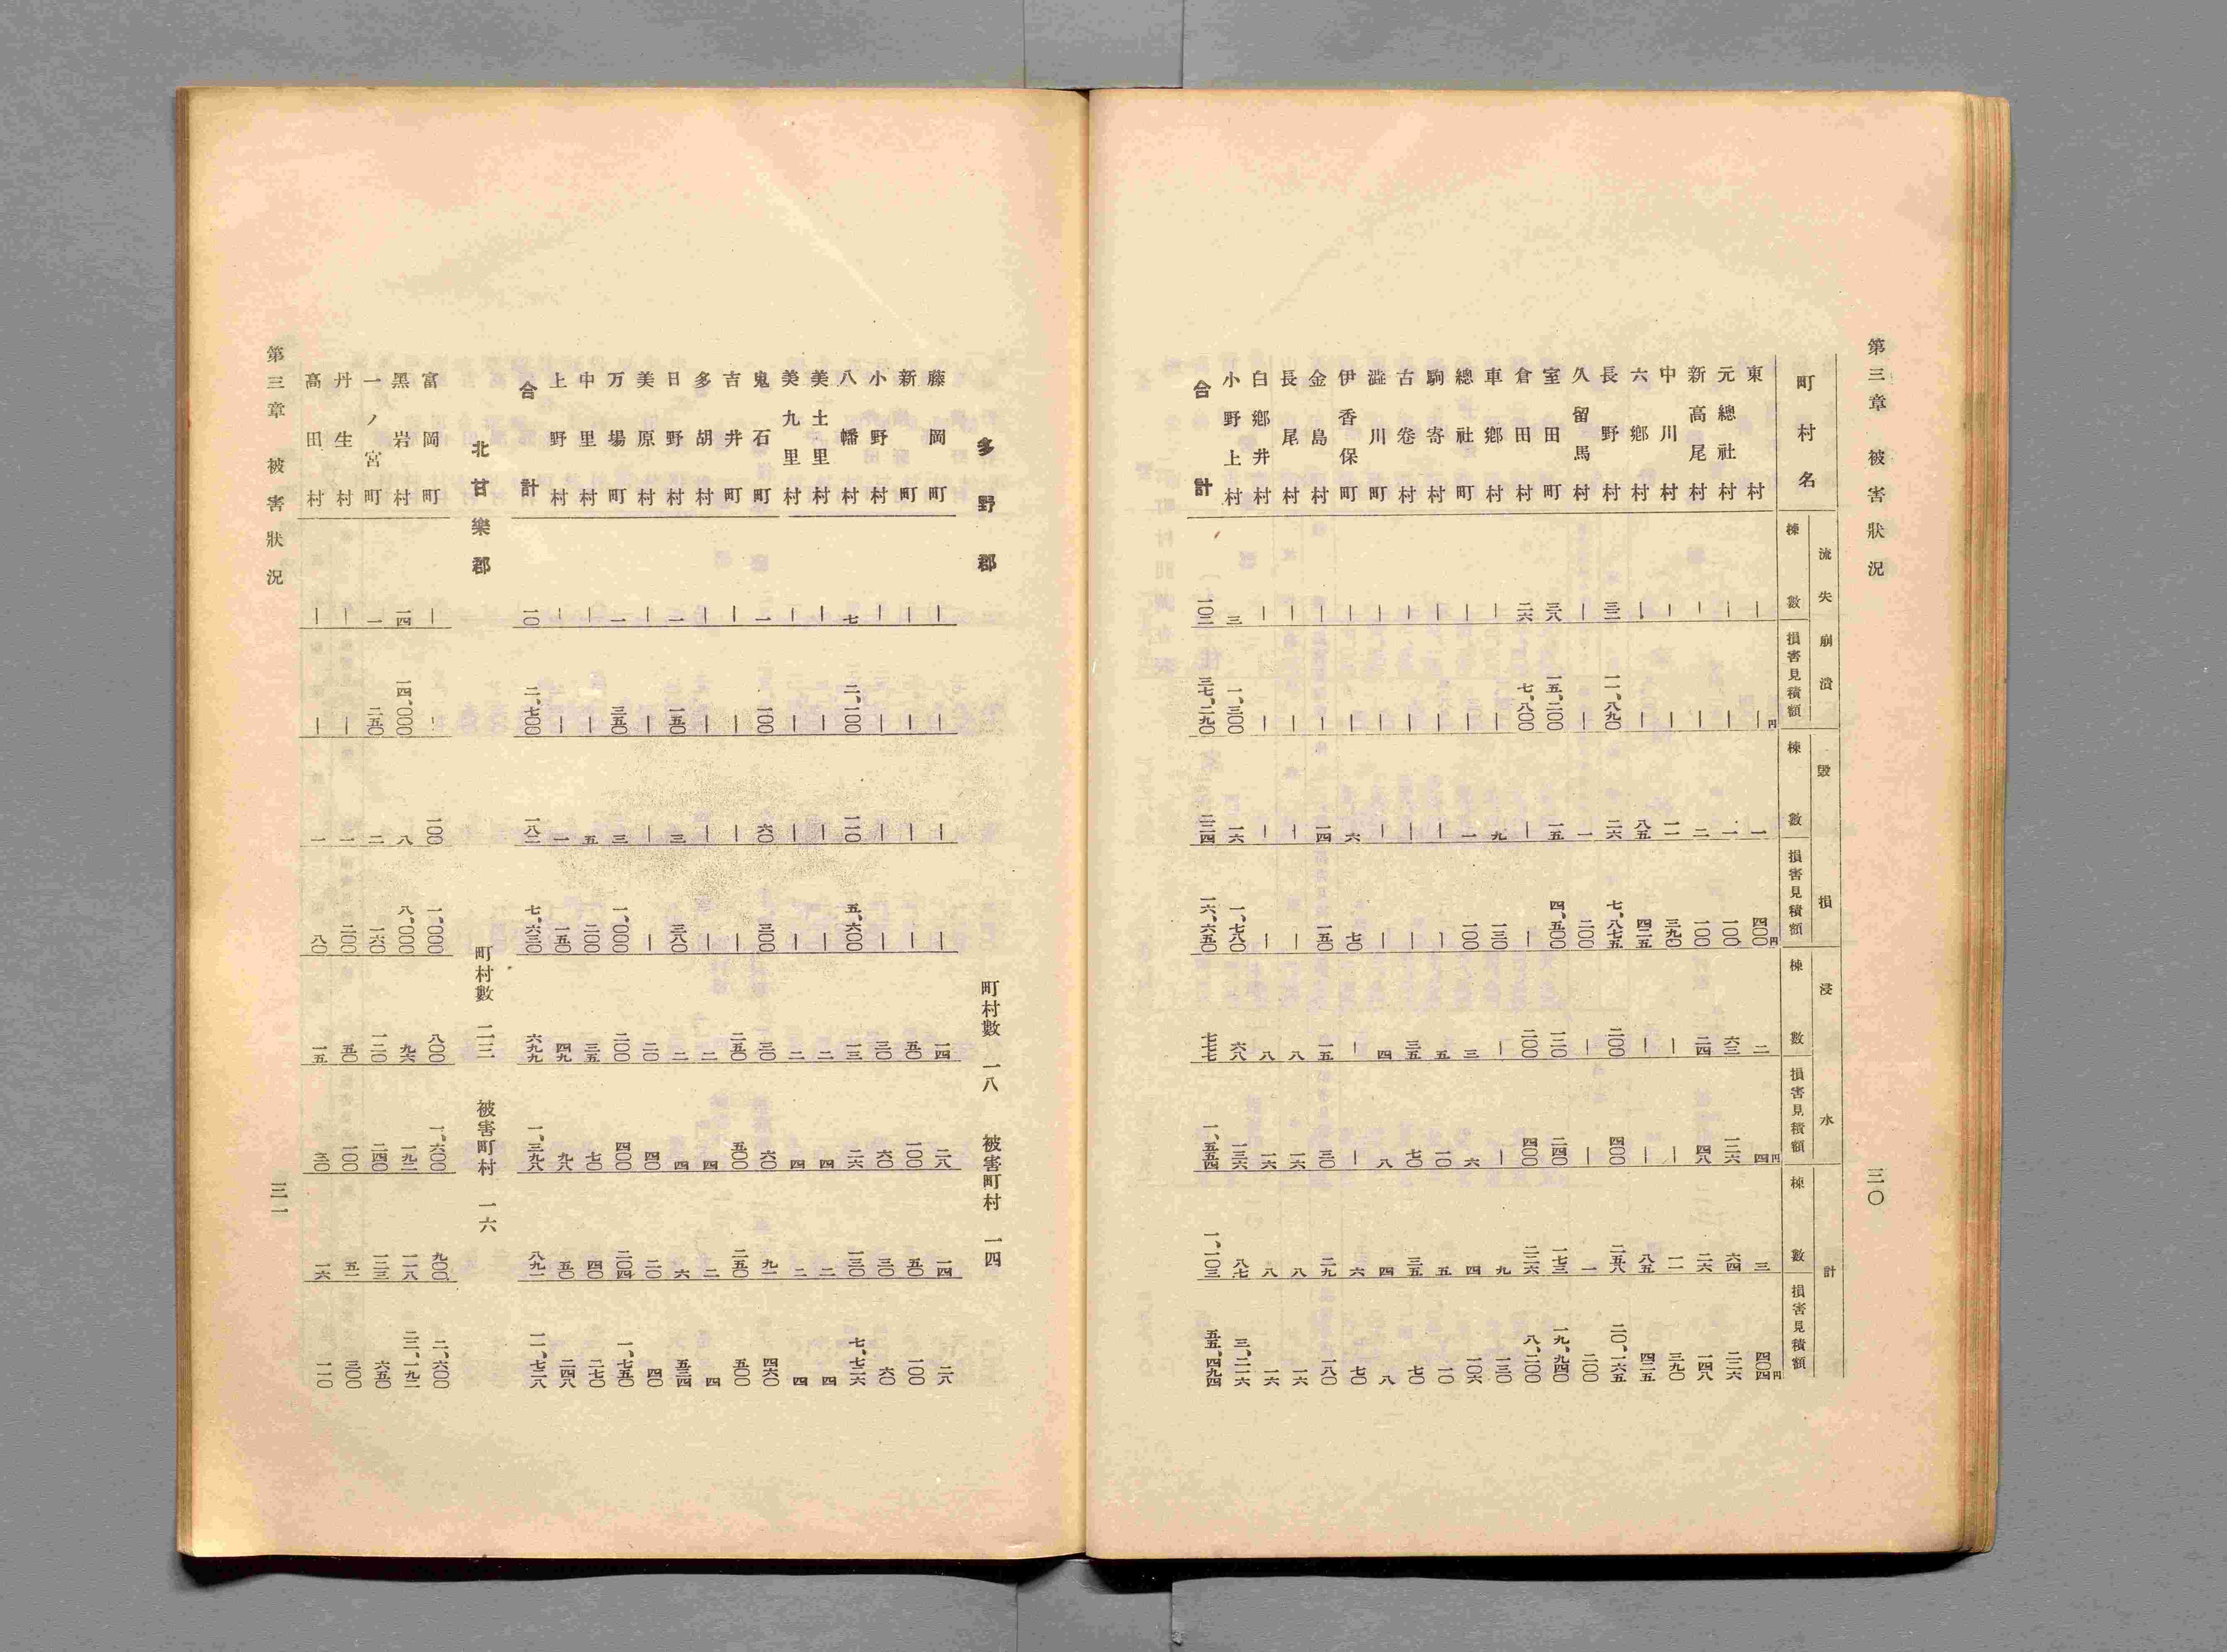 第三章 被害狀況 三〇
町村名 流失崩潰 毀損 浸水 計
棟數 損害見積額 棟數 損害見積額 棟數 損害見積額 棟數 損害見積額
東村 — —円 一 四〇〇円 二 四円 三 四〇四円
元總社村 — — 一 一〇〇 六三 一二六 六四 二二六
新高尾村 — — 二 一〇〇 二四 四八 二六 一四八
中川村 — — 一一 三九〇 — — 一一 三九〇
六鄉村 — — 八五 四二五 — — 八五 四二五
長野村 三二 一一,八九〇 二六 七,八七五 二〇〇 四〇〇 二五八 二〇,一六五
久留馬村 — — 一 二〇〇 — — 一 二〇〇
室田町 三八 一五,二〇〇 一五 四,五〇〇 一二〇 二四〇 一七三 一九,九四〇
倉田村 二六 七,八〇〇 — — 二〇〇 四〇〇 二二六 八,二〇〇
車鄉村 — — 九 一三〇 — — 九 一三〇
總社町 — — 一 一〇〇 三 六 四 一〇六
駒寄村 — — — — 五 一〇 五 一〇
古卷村 — — — — 三五 七〇 三五 七〇
澁川町 — — — — 四 八 四 八
伊香保町 — — 六 七〇 — — 六 七〇
金島村 — — 一四 一五〇 一五 三〇 二九 一八〇
長尾村 — — — — 八 一六 八 一六
白鄉井村 — — — — 八 一六 八 一六
小野上村 三 一,三〇〇 一六 一,七八〇 六八 一三六 八七 三,二一六
合計 一〇二 三七,二九〇 二二四 一六,六五〇 七七七 一,五五四 一,一〇三 五五,四九四
多野郡 町村數 一八 被害町村 一四
藤岡町 — — — — 一四 二八 一四 二八
新町 — — — — 五〇 一〇〇 五〇 一〇〇
小野村 — — — — 三〇 六〇 三〇 六〇
八幡村 七 二,一〇〇 一一〇 五,六〇〇 一三 二六 一三〇 七,七二六
美土里村 — — — — 二 四 二 四
美九里村 — — — — 二 四 二 四
鬼石町 一 一〇〇 六〇 三〇〇 三〇 六〇 九一 四六〇
吉井町 — — — — 二五〇 五〇〇 二五〇 五〇〇
多胡村 — — — — 二 四 二 四
日野村 一 一五〇 三 三八〇 二 四 六 五三四
美原村 — — — — 二〇 四〇 二〇 四〇
万場町 一 三五〇 三 一,〇〇〇 二〇〇 四〇〇 二〇四 一,七五〇
中里村 — — 五 二〇〇 三五 七〇 四〇 二七〇
上野村 — — 一 一五〇 四九 九八 五〇 二四八
合計 一〇 二,七〇〇 一八二 七,六三〇 六九九 一,三九八 八九一 一一,七二八
北甘樂郡 町村數 二三 被害町村 一六
富岡町 — — 一〇〇 一,〇〇〇 八〇〇 一,六〇〇 九〇〇 二,六〇〇
黑岩村 一四 一四,〇〇〇 八 八,〇〇〇 九六 一九二 一一八 二二,一九二
一ノ宮町 一 二五〇 二 一六〇 一二〇 二四〇 一二三 六五〇
丹生村 — — 一 二〇〇 五〇 一〇〇 五一 三〇〇
高田村 — — 一 八〇 一五 三〇 一六 一一〇
第三章 被害狀況 三一